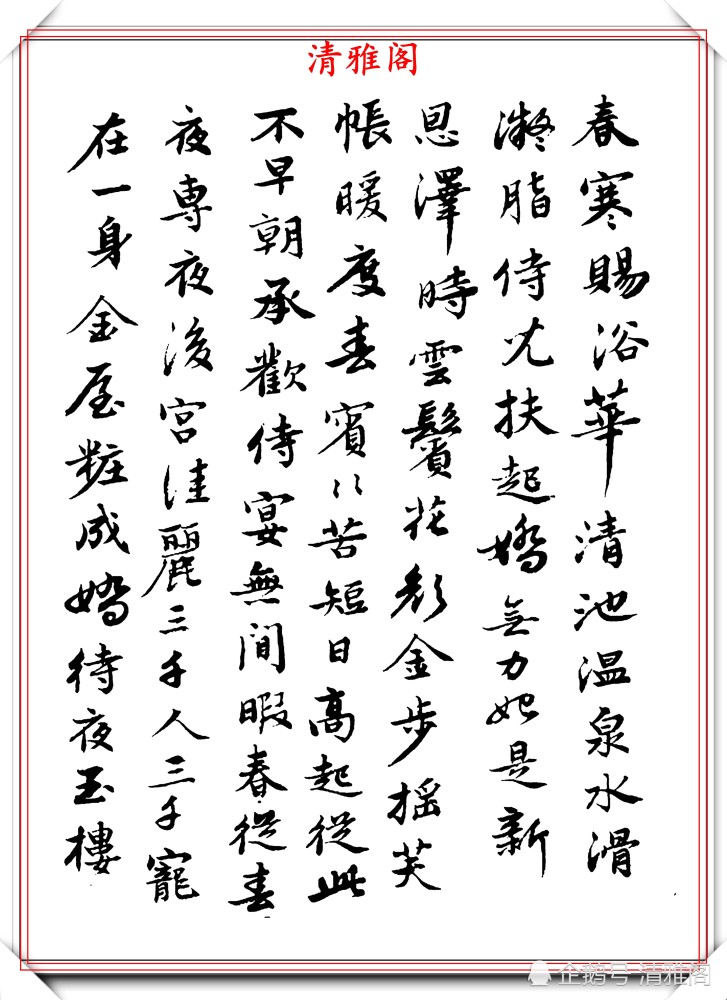 清雅阁
春寒賜浴華清池温泉水滑
凝脂侍兒扶起嬌無力始是新
恩澤時雲鬢花顏金步摇芙
帳暖度春宵〻苦短日高起從此
不早朝承歡侍宴無閒暇春從春
夜専夜後宮佳麗三千人三千寵
在一身金屋粧成嬌待夜玉樓
企鹅号 清雅阁